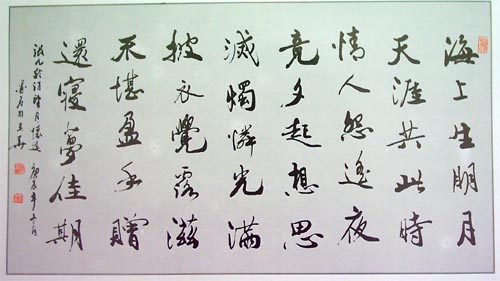 海上生明月
天涯共此時
情人怨遙夜
竟夕起想思
滅燭憐光滿
披衣覺露滋
不堪盈手贈
還寢夢佳期
張九齡詩望月懷遠 庚辰年